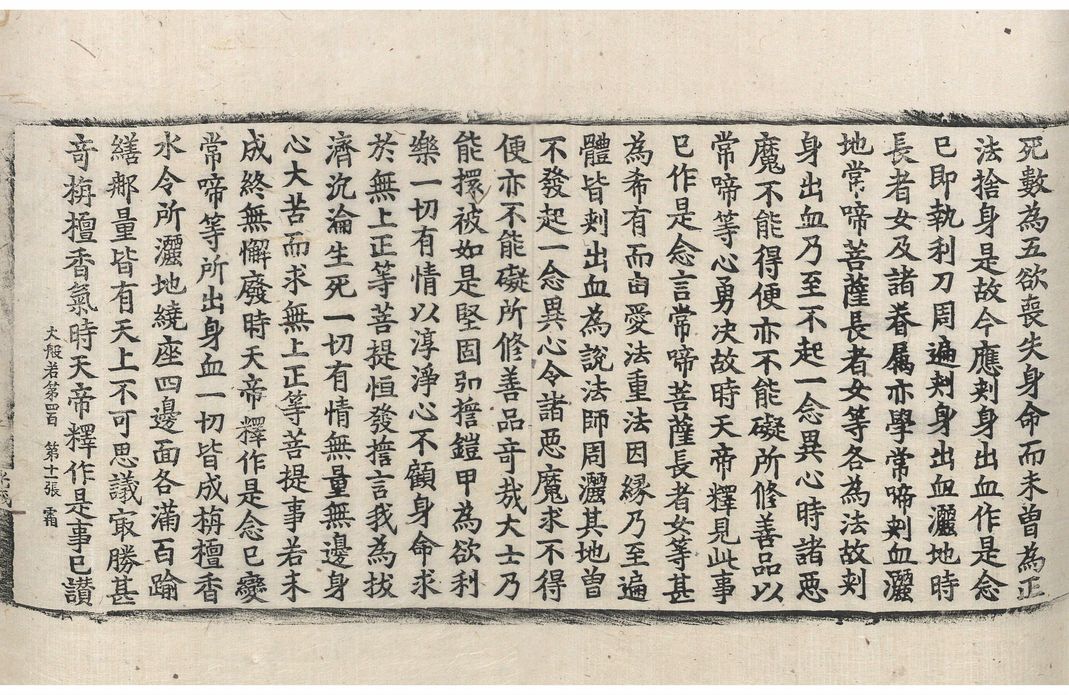 死數為五欲喪失身命而未曾為正
法捨身是故今應刺身出血作是念
已即執利刀周遍刺身出血灑地時
長者女及諸眷属亦學常啼刺血灑
地常啼菩薩長者女等各為法故刺
身出血乃至不起一念異心時諸惡
魔不能得便亦不能礙所修善品以
常啼等心勇决故時天帝釋見此事
已作是念言常啼菩薩長者女等甚
為希有而由愛法重法因縁乃至遍
體皆刺出血為說法師周灑其地曾
不發起一念異心令諸惡魔求不得
便亦不能礙所修善品竒㢤大士乃
能擐被如是堅固弘擔鎧甲為欲利
樂一切有情以淳淨心不顧身命求
於無上正等菩提恒發擔言我為拔
濟沉淪生死一切有情無量無邊身
心大苦而求無上正等菩提事若未
成終無懈廢時天帝釋作是念已變
常啼等所出身血一切皆成栴檀香
水令所灑地繞座四邊面各滿百踰
繕那量皆有天上不可思議冣勝甚
竒栴檀香氣時天帝釋作是事已讃
大般若第四百 第十一張 霜